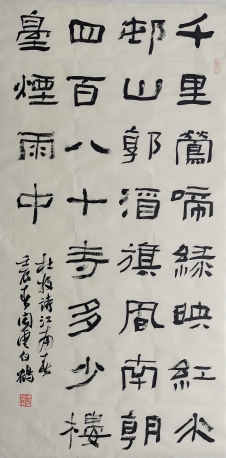 千里鶯啼緑映紅水
邨山郭酒旗風南朝
四百八十寺多少樓
臺煙雨中
杜牧詩江南春
壬辰